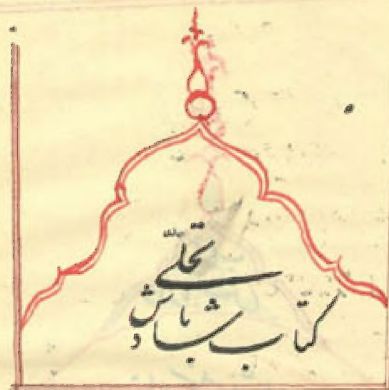 کتاب شادباش
تجلّی